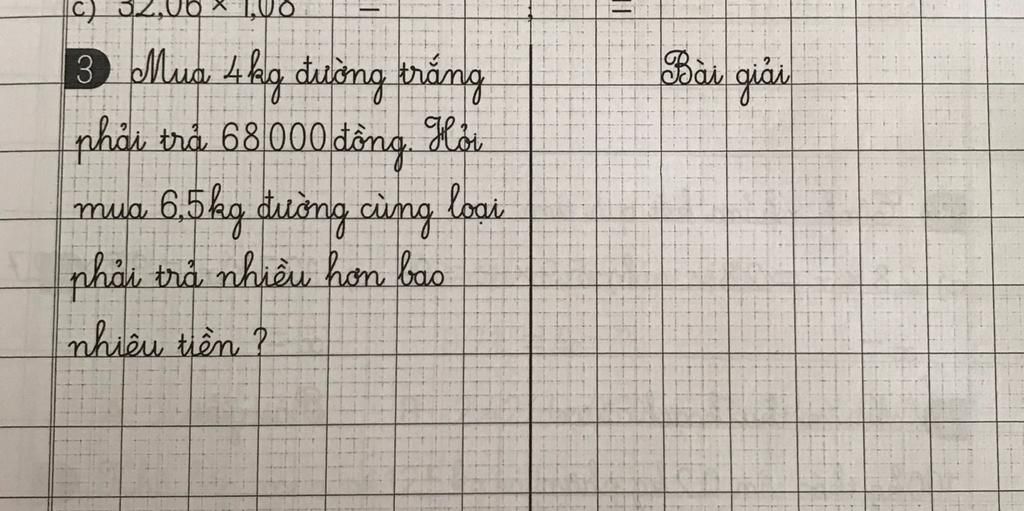 c) 32,06 × 1,08 = ; =
3 Mua 4kg đường trắng
phải trả 68 000 đồng. Hỏi
mua 6,5kg đường cùng loại
phải trả nhiều hơn bao
nhiêu tiền ?
Bài giải